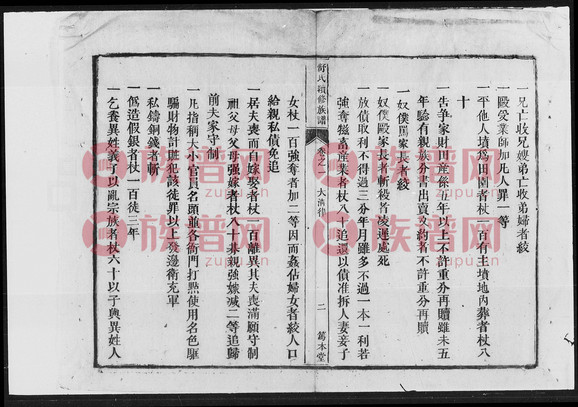 一兄亡收兄嫂弟亡收弟婦者絞
一毆受業師加凡人罪二等
一平他人墳爲田園者杖一百有主墳地內葬者杖八
十
一告爭家財田產係五年以上不許重分再贖雖未五
年驗有親族分書出賣文約者不許重分再贖
一奴僕罵家長者絞
一奴僕毆家長者斬殺者凌遲處死
一放債取利不得過三分年月雖多不過一本一利若
強奪孳畜產業者杖八十追還以債准折人妻妾子
舒氏續修族譜
卷之一
大清律
二
篤本堂
女杖一百強奪者加二等因而姦佔婦女者絞人口
給親私債免追
一居夫喪而自嫁娶者杖一百離異其夫喪滿願守制
祖父母父母強嫁者杖八十非親強嫁減二等追歸
前夫家守制
一凡指稱大小官員名頭並各衙門打點使用名色驅
騙財物計贓犯該徒罪以上發邊衛充軍
一私鑄銅錢者斬
一僞造假銀者杖一百徒三年
一乞養異姓義子以亂宗族者杖六十以子與異姓人
族譜网
zupu.cn
族譜网
zupu.cn